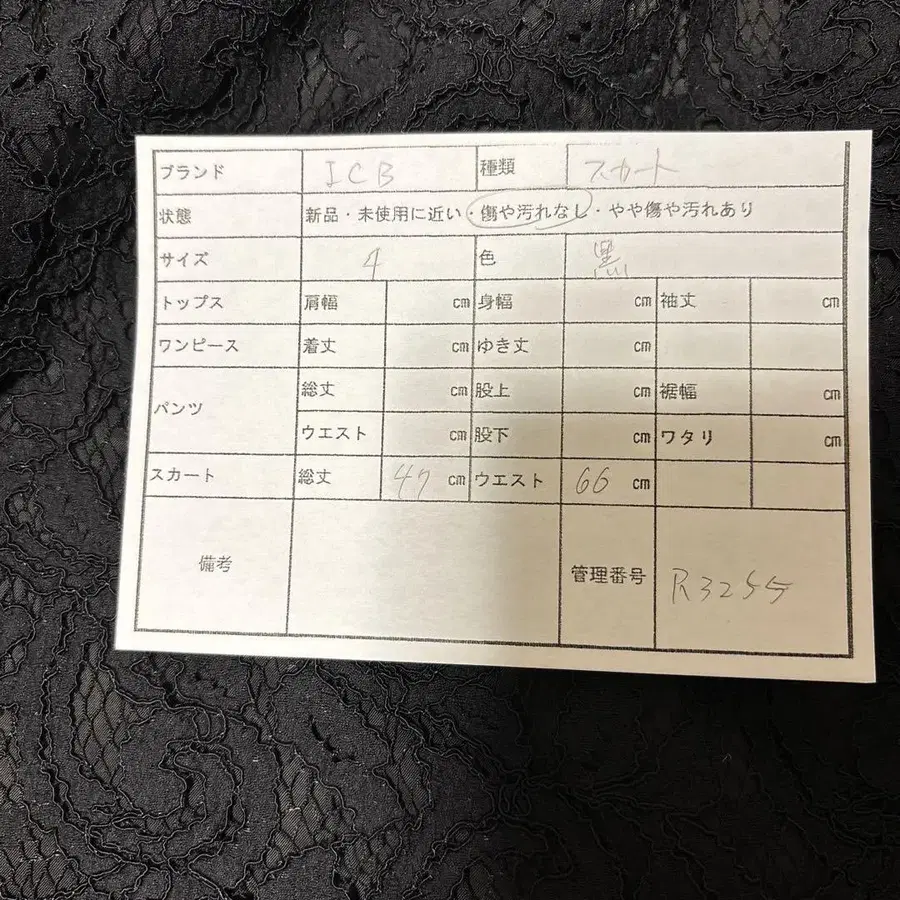 ブランド ICB 種類 スカート
状態 新品・未使用に近い・傷や汚れなし・やや傷や汚れあり
サイズ 4 色 黒
トップス 肩幅 cm 身幅 cm 袖丈 cm
ワンピース 着丈 cm ゆき丈 cm
パンツ 総丈 cm 股上 cm 裾幅 cm
ウエスト cm 股下 cm ワタリ cm
スカート 総丈 47 cm ウエスト 66 cm
備考 管理番号 R3255